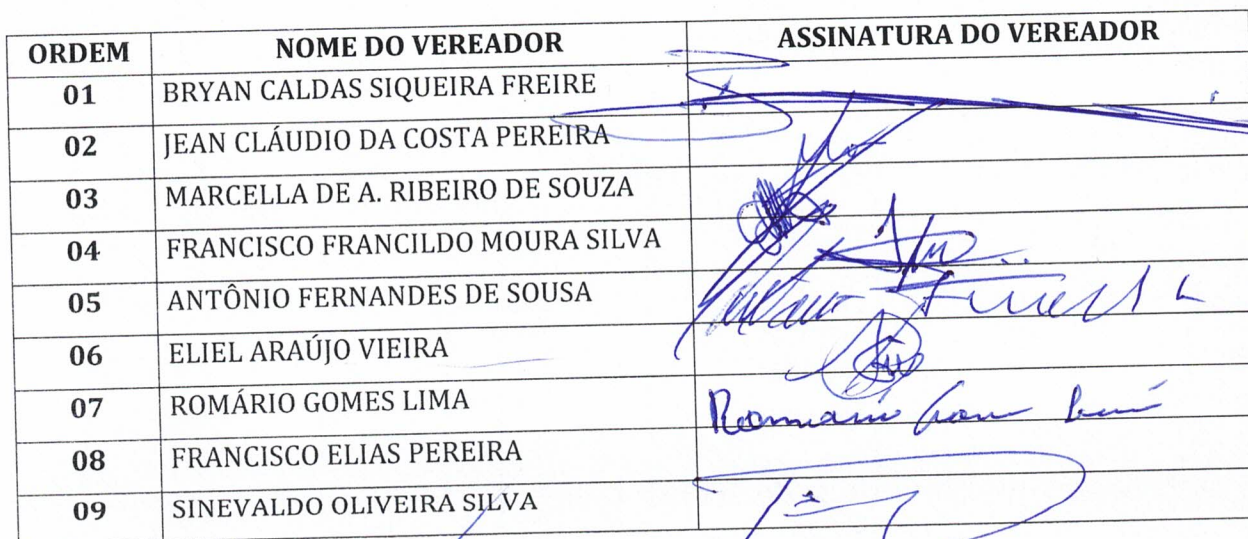 ORDEM NOME DO VEREADOR ASSINATURA DO VEREADOR
01 BRYAN CALDAS SIQUEIRA FREIRE
02 JEAN CLÁUDIO DA COSTA PEREIRA
03 MARCELLA DE A. RIBEIRO DE SOUZA
04 FRANCISCO FRANCILDO MOURA SILVA
05 ANTÔNIO FERNANDES DE SOUSA
06 ELIEL ARAÚJO VIEIRA
07 ROMÁRIO GOMES LIMA
08 FRANCISCO ELIAS PEREIRA
09 SINEVALDO OLIVEIRA SILVA